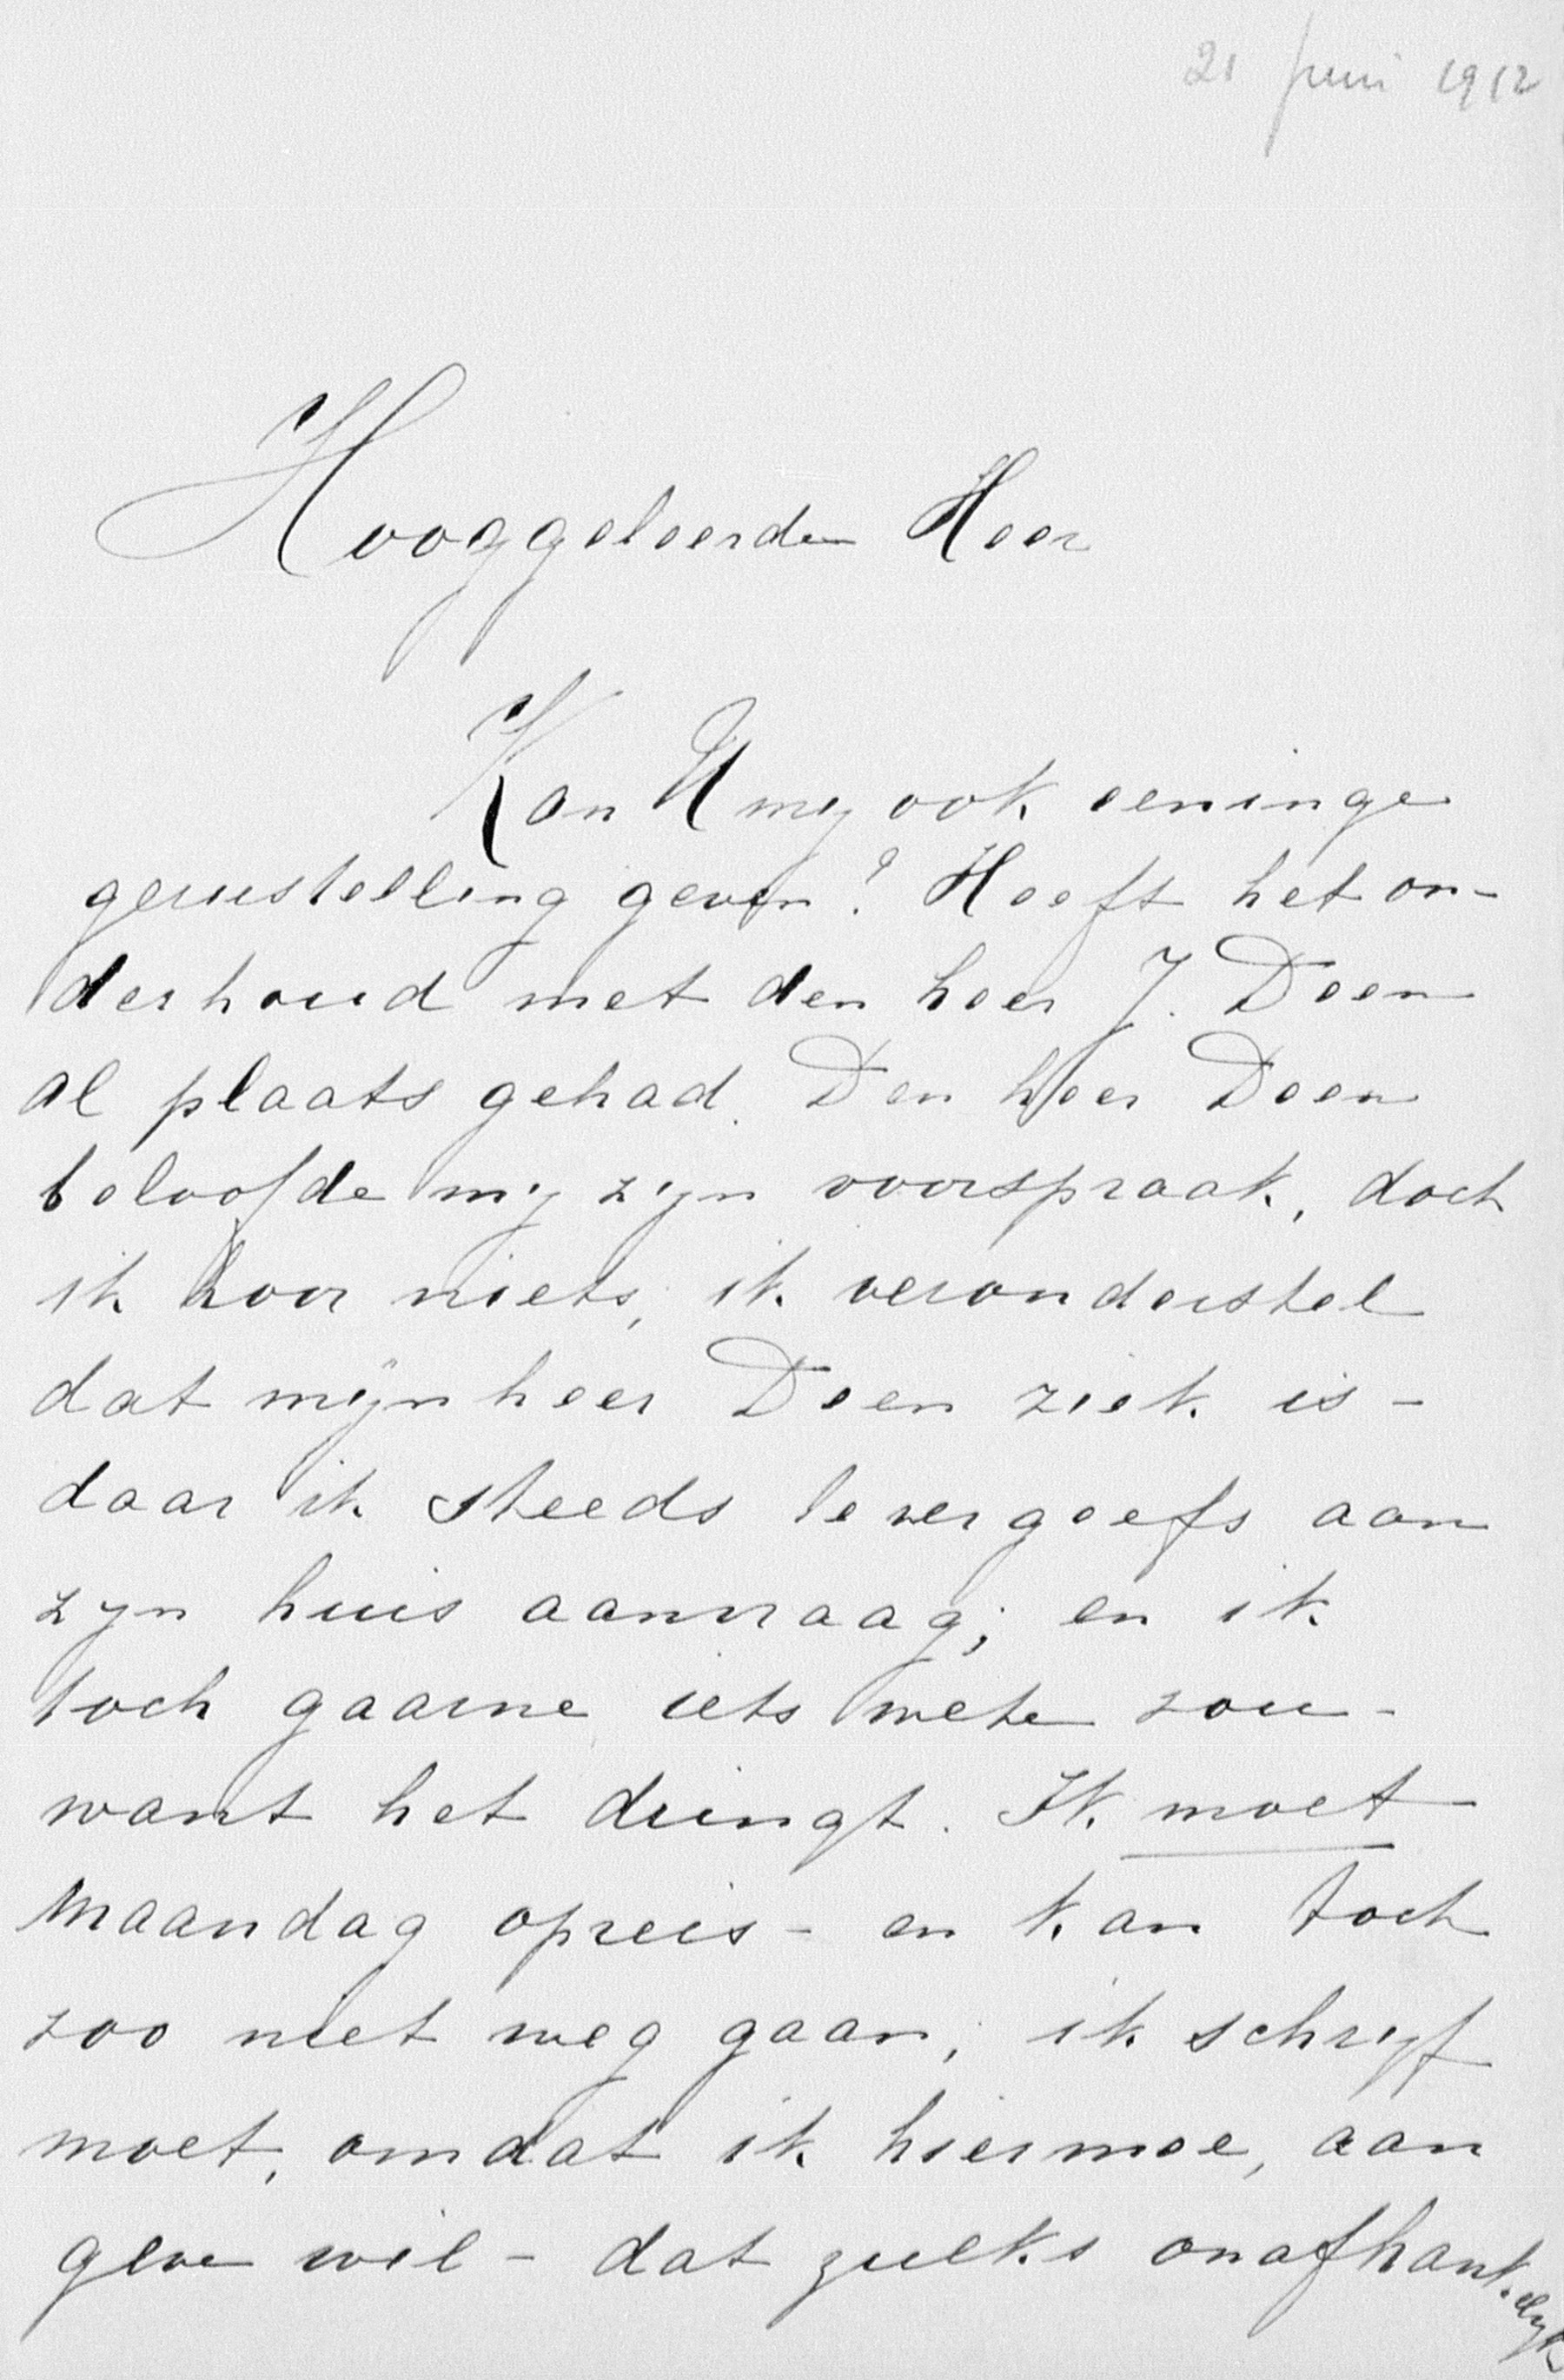 21 Juni 1912
Hooggeleerden Heer
Kan U mij ook eeninge
gerustelling geven? Heeft het on-
derhoud met den heer J. Deen
al plaats gehad. Den heer Deen
beloofde mij zijn voorspraak, doch
ik hoor niets, ik veronderstel
dat mijnheer Deen ziek is -
daar ik steeds te vergeefs aan
zijn huis aanvraag; en ik
toch gaarne iets weten zou -
want het dringt. Ik moet
Maandag opreis - en kan toch
zoo niet weg gaan, ik schrijf
moet, omdat ik hiermee, aan
geven wil - dat zulks onafhankelijk